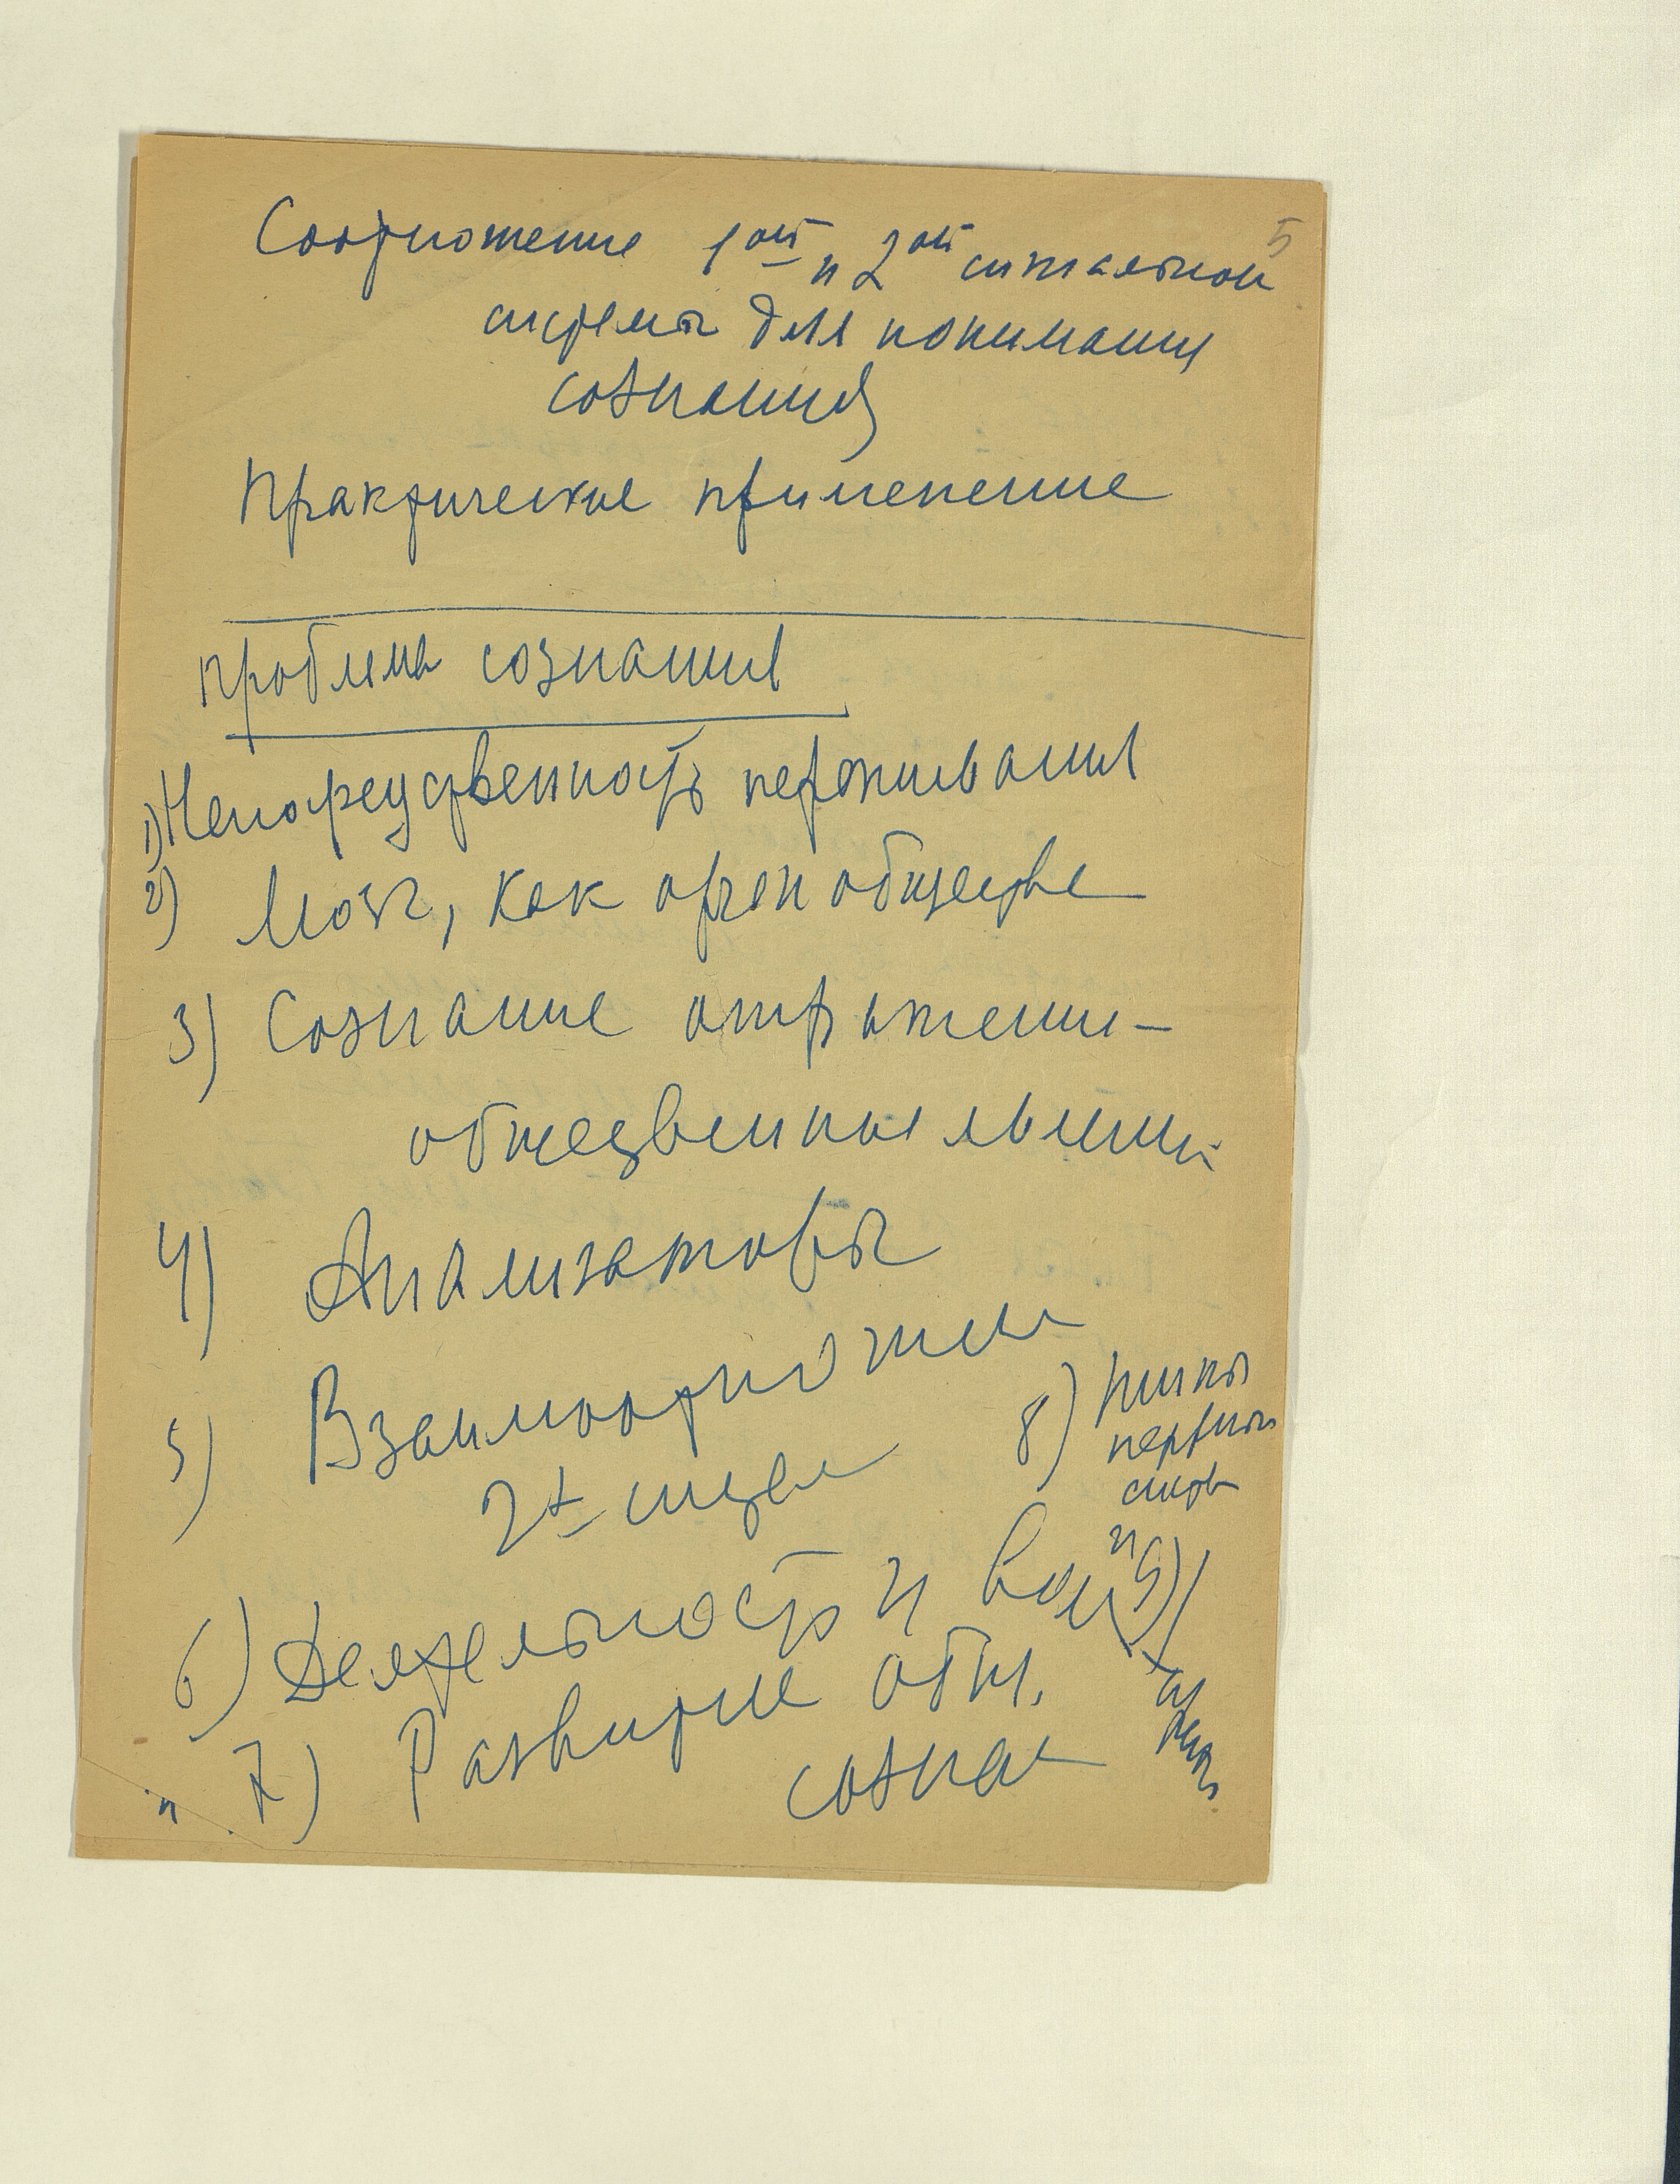 5
Соотношение 1ой и 2ой сигнальной
системы для понимания
сознания
Практическое применение
Проблема сознания
1) Непосредственность переживания
2) Мозг, как орган общества
3) Сознание отражение
общественных
4) Анализаторы
5) Взаимоотноше
2х
6) Деятельность и воля
7) Развитие общ.
созна
8) типы
нервной
систе
и 9)